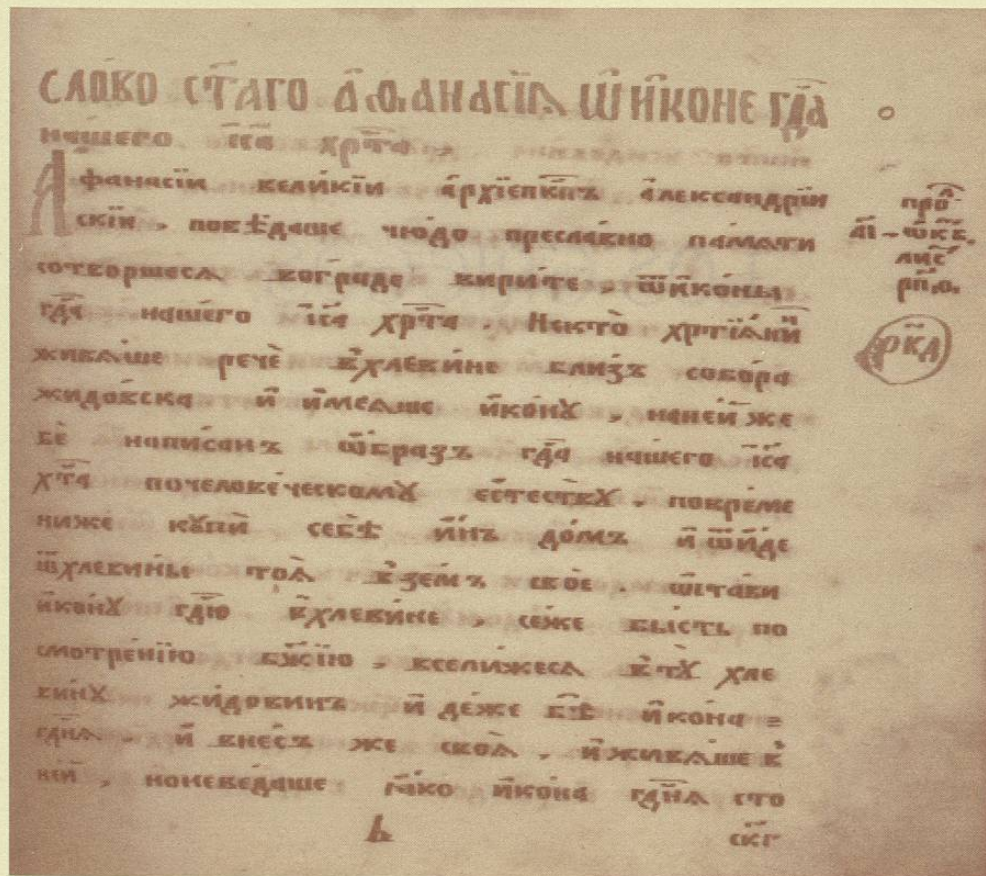 СЛОВО СТ҃АГО А҆ѲАНАСЇѦ Ѿ И҆КОНЕ ГДⷭ҇А
нашего і҆с҃а хрⷭ҇та
Аѳанасїи вели́кїи а҆рхїепⷭ҇кпъ а҆леѯандрїи
скїи , повѣ́даше чю́до пресла́вно па́мѧти
сотво́ршесѧ во гра́де вири́те , ѿ и҆ко́ны
гдⷭ҇а на́шего і҆с҃а хрⷭ҇та . Не́кто хрⷭ҇тїѧ́нин
живѧ́ше речѐ в̾хле́вине бли́зъ собо́ра
жидо́вска и҆ и҆мѧ́ше и҆ко́нꙋ , на не́й же
бѐ напи́санъ ѡ҆́бразъ гдⷭ҇а на́шего і҆с҃а
хрⷭ҇та по человѣ́ческомꙋ є҆стествꙋ̀ , по вре́ме
ни же кꙋпѝ себѣ̀ и҆́нъ до́мъ и҆ ѿи́де
ѿ хле́вины тоѧ̀ в̾зе́мъ своѐ . ѡ҆ста́ви
и҆ко́нꙋ гдⷭ҇ню в̾хле́вине , се́ же бы́сть по
смотре́нїю бж҃їю , всели́жесѧ в̾тꙋ̀ хле
винꙋ жи́довинъ и҆де́же бѣ̀ и҆ко́на
гдⷭ҇нѧ , и҆ внесъ же своѧ̀ , и҆ живѧ́ше в̾
не́й , но не ве́даше ꙗ҆́ко и҆ко́на гдⷭ҇нѧ сто
про
лис
рка